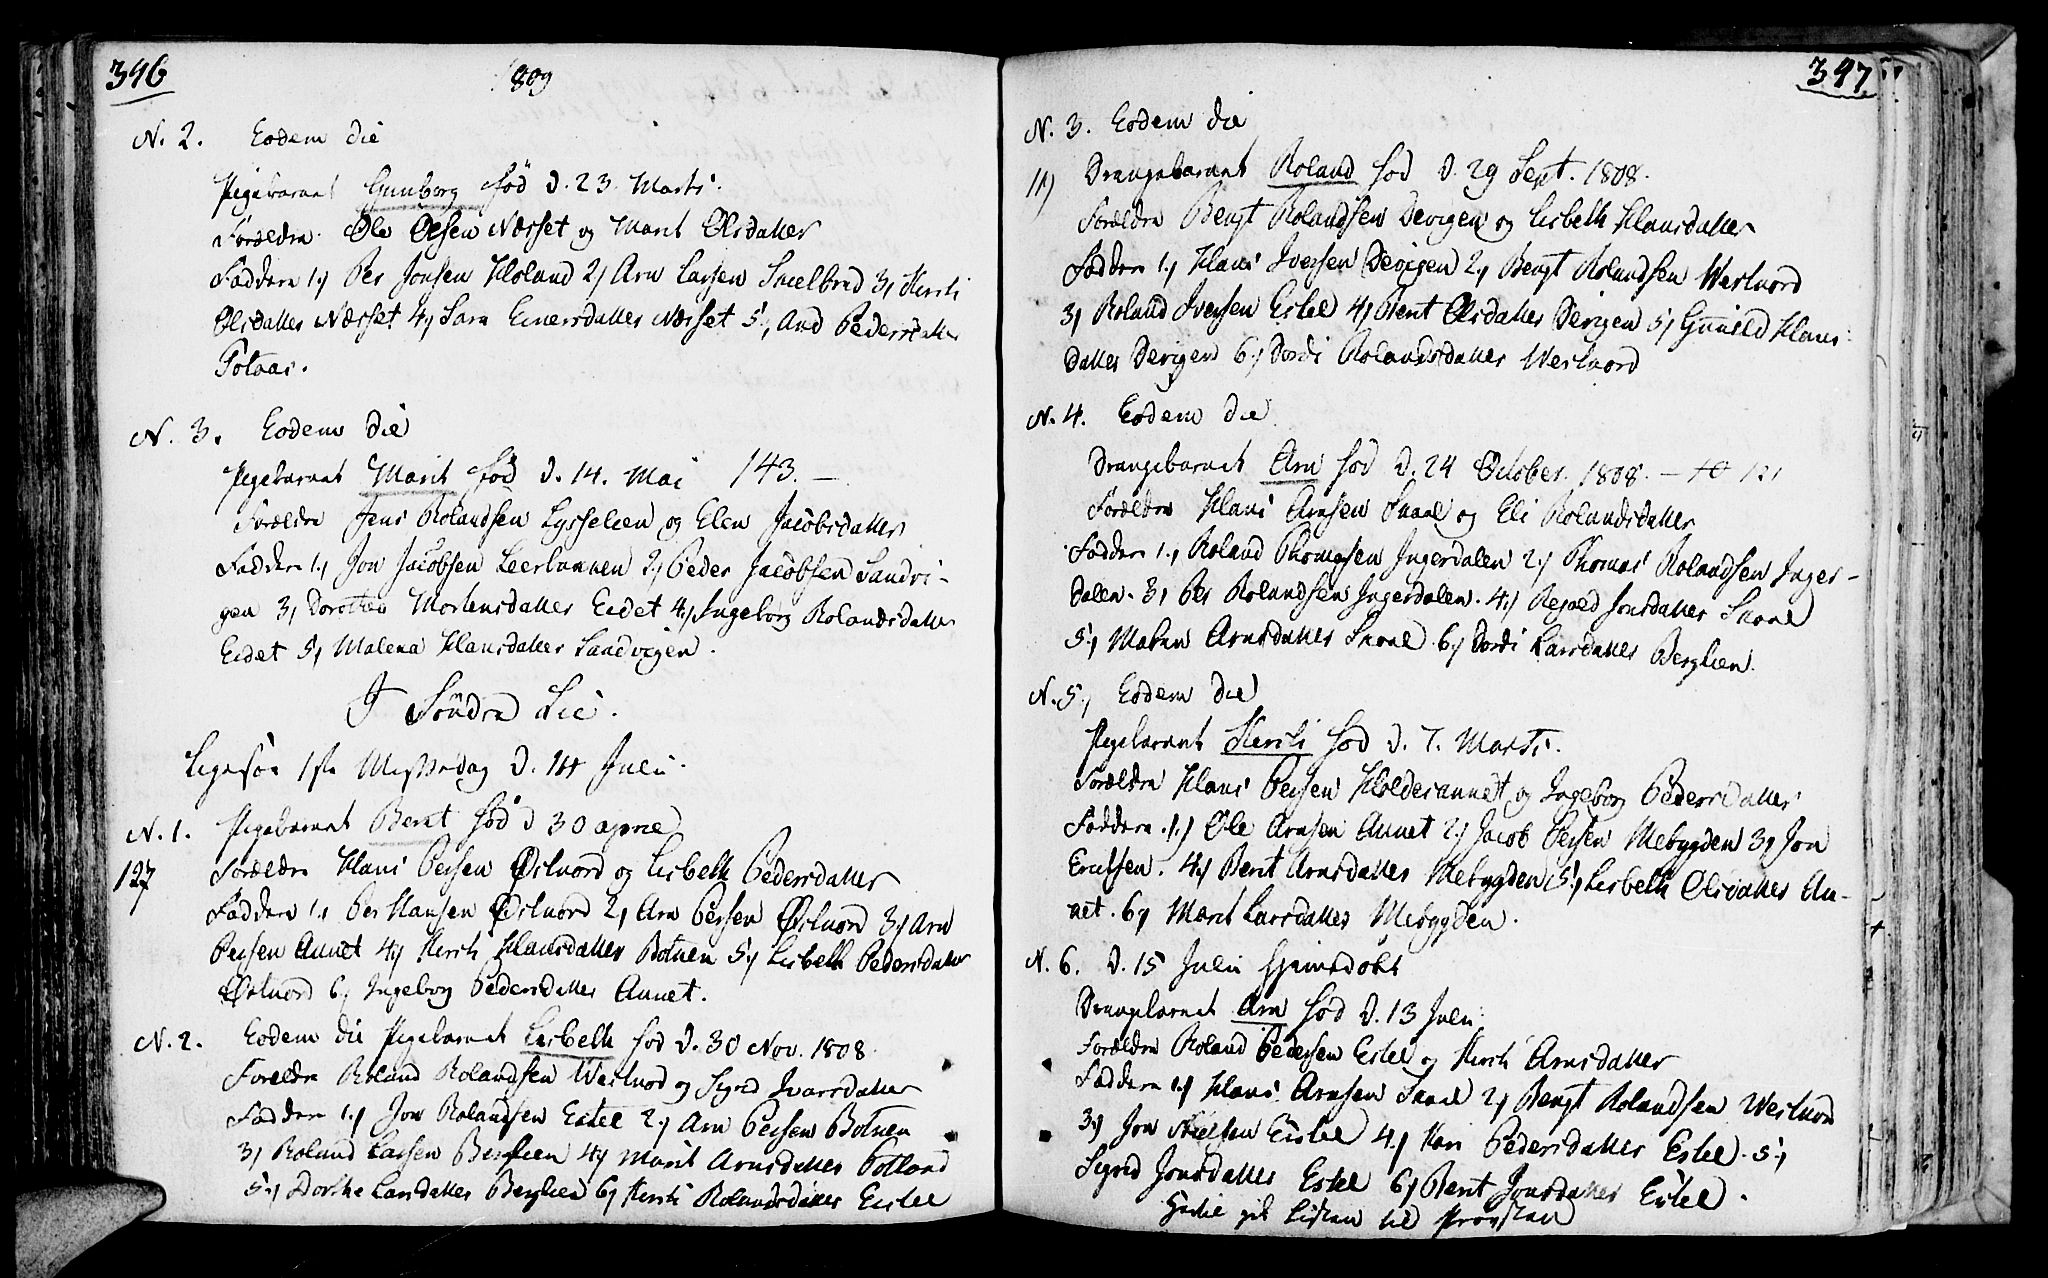 346
1809
N. 2. Eodem die
Pigebarnet Gunborg fød d. 23 Marti.
Forældre Ole Olsen Næsset og Marit Olsdatter
Faddere 1, Per Jonsen Holand 2, Arn Larsen Snelbred 3, Kersti
Olsdatter Næsset 4, Sara Einersdatter Næsset 5, And Pedersdatter
Totaas.
N. 3. Eodem die
Pigebarnet Marit fød d. 14. Mai 143. —
Forældre Jens Rolandsen Lysselien og Elen Jacobsdatter
Faddere 1, Jon Jacobsen Leerbannen 2, Peder Jacobsen Sandvi-
gen 3, Dorothea Mortensdatter Eidet 4, Ingeborg Rolandsdatter
Eidet 5, Malena Hansdatter Sandvigen.
I Søndre Lie.
Ligesom 1ste Messedag d. 14 Juli.
N. 1. Pigebarnet Berit fød d 30 april
127 Forældre Hans Persen Østnord og Lisbeth Pedersdatter
Faddere 1, Per Hansen Østnord 2, Arn Persen Østnord 3, Arn
Persen Annet 4, Kersti Hansdatter Botnen 5, Lisbeth Pedersdatter
Østnord 6, Ingeborg Pedersdatter Annet.
N. 2. Eodem die Pigebarnet Lisbeth fød d. 30 Nov. 1808
Forældre Roland Rolandsen Westnord og Sigrid Ivarsdatter
Faddere 1, Jon Rolandsen Estel 2, Arn Persen Botnen
3, Roland Larsen Berglien 4, Marit Arnsdatter Totland
5, Dorthe Larsdatter Berglien 6, Kersti Rolandsdatter Eistel
347
N. 3. Eodem die
11) Drengebarnet Roland fød d. 29 Sept. 1808.
Forældre Bengt Rolandsen Devigen og Lisbeth Hansdatter
Faddere 1, Hans Iversen Devigen 2, Bengt Rolandsen Westnord
3, Roland Iversen Estel 4, Berit Olsdatter Devigen 5, Gunild Hans
datter Devigen 6, Dordi Rolandsdatter Westnord
N. 4. Eodem die
Drengebarnet Arn fød d. 24 October. 1808. — 121
Forældre Hans Arnsen Skael og Eli Rolandsdatter
Faddere 1, Roland Thomesen Ingerdalen 2, Thomas Rolandsen Inger-
dalen. 3, Per Rolandsen Ingerdalen. 4, Jonsdatter Skael
5, Malen Arnsdatter Skael. 6, Dordi Larsdatter Berglien.
N. 5, Eodem die
Pigebarnet Kersti fød d. 7. Marti.
Forældre Hans Persen Holdesannet og Ingeborg Pedersdatter
Faddere 1, Ole Arnsen Annet 2, Jacob Persen Mebygden 3, Jon
Ericksen. 4, Berit Arnsdatter Mebygden 5, Lisbeth Olsdatter An-
net. 6, Marit Larsdatter Mebygden.
N. 6. d. 15 Juli hjemdøbt
Drengebarnet Arn fød d. 13 Juli
Forældre Roland Pedersen Estel og Kersti Arnsdatter
Faddere 1, Hans Arnsen Skael 2, Bengt Rolandsen Westnord
3, Jon Nielsen Eistel 4, Kari Pedersdatter Estel. 5,
Sigrid Jonsdatter Estel 6, Berit Jonsdatter Eistel.
Hertil gik Listen til Provsten